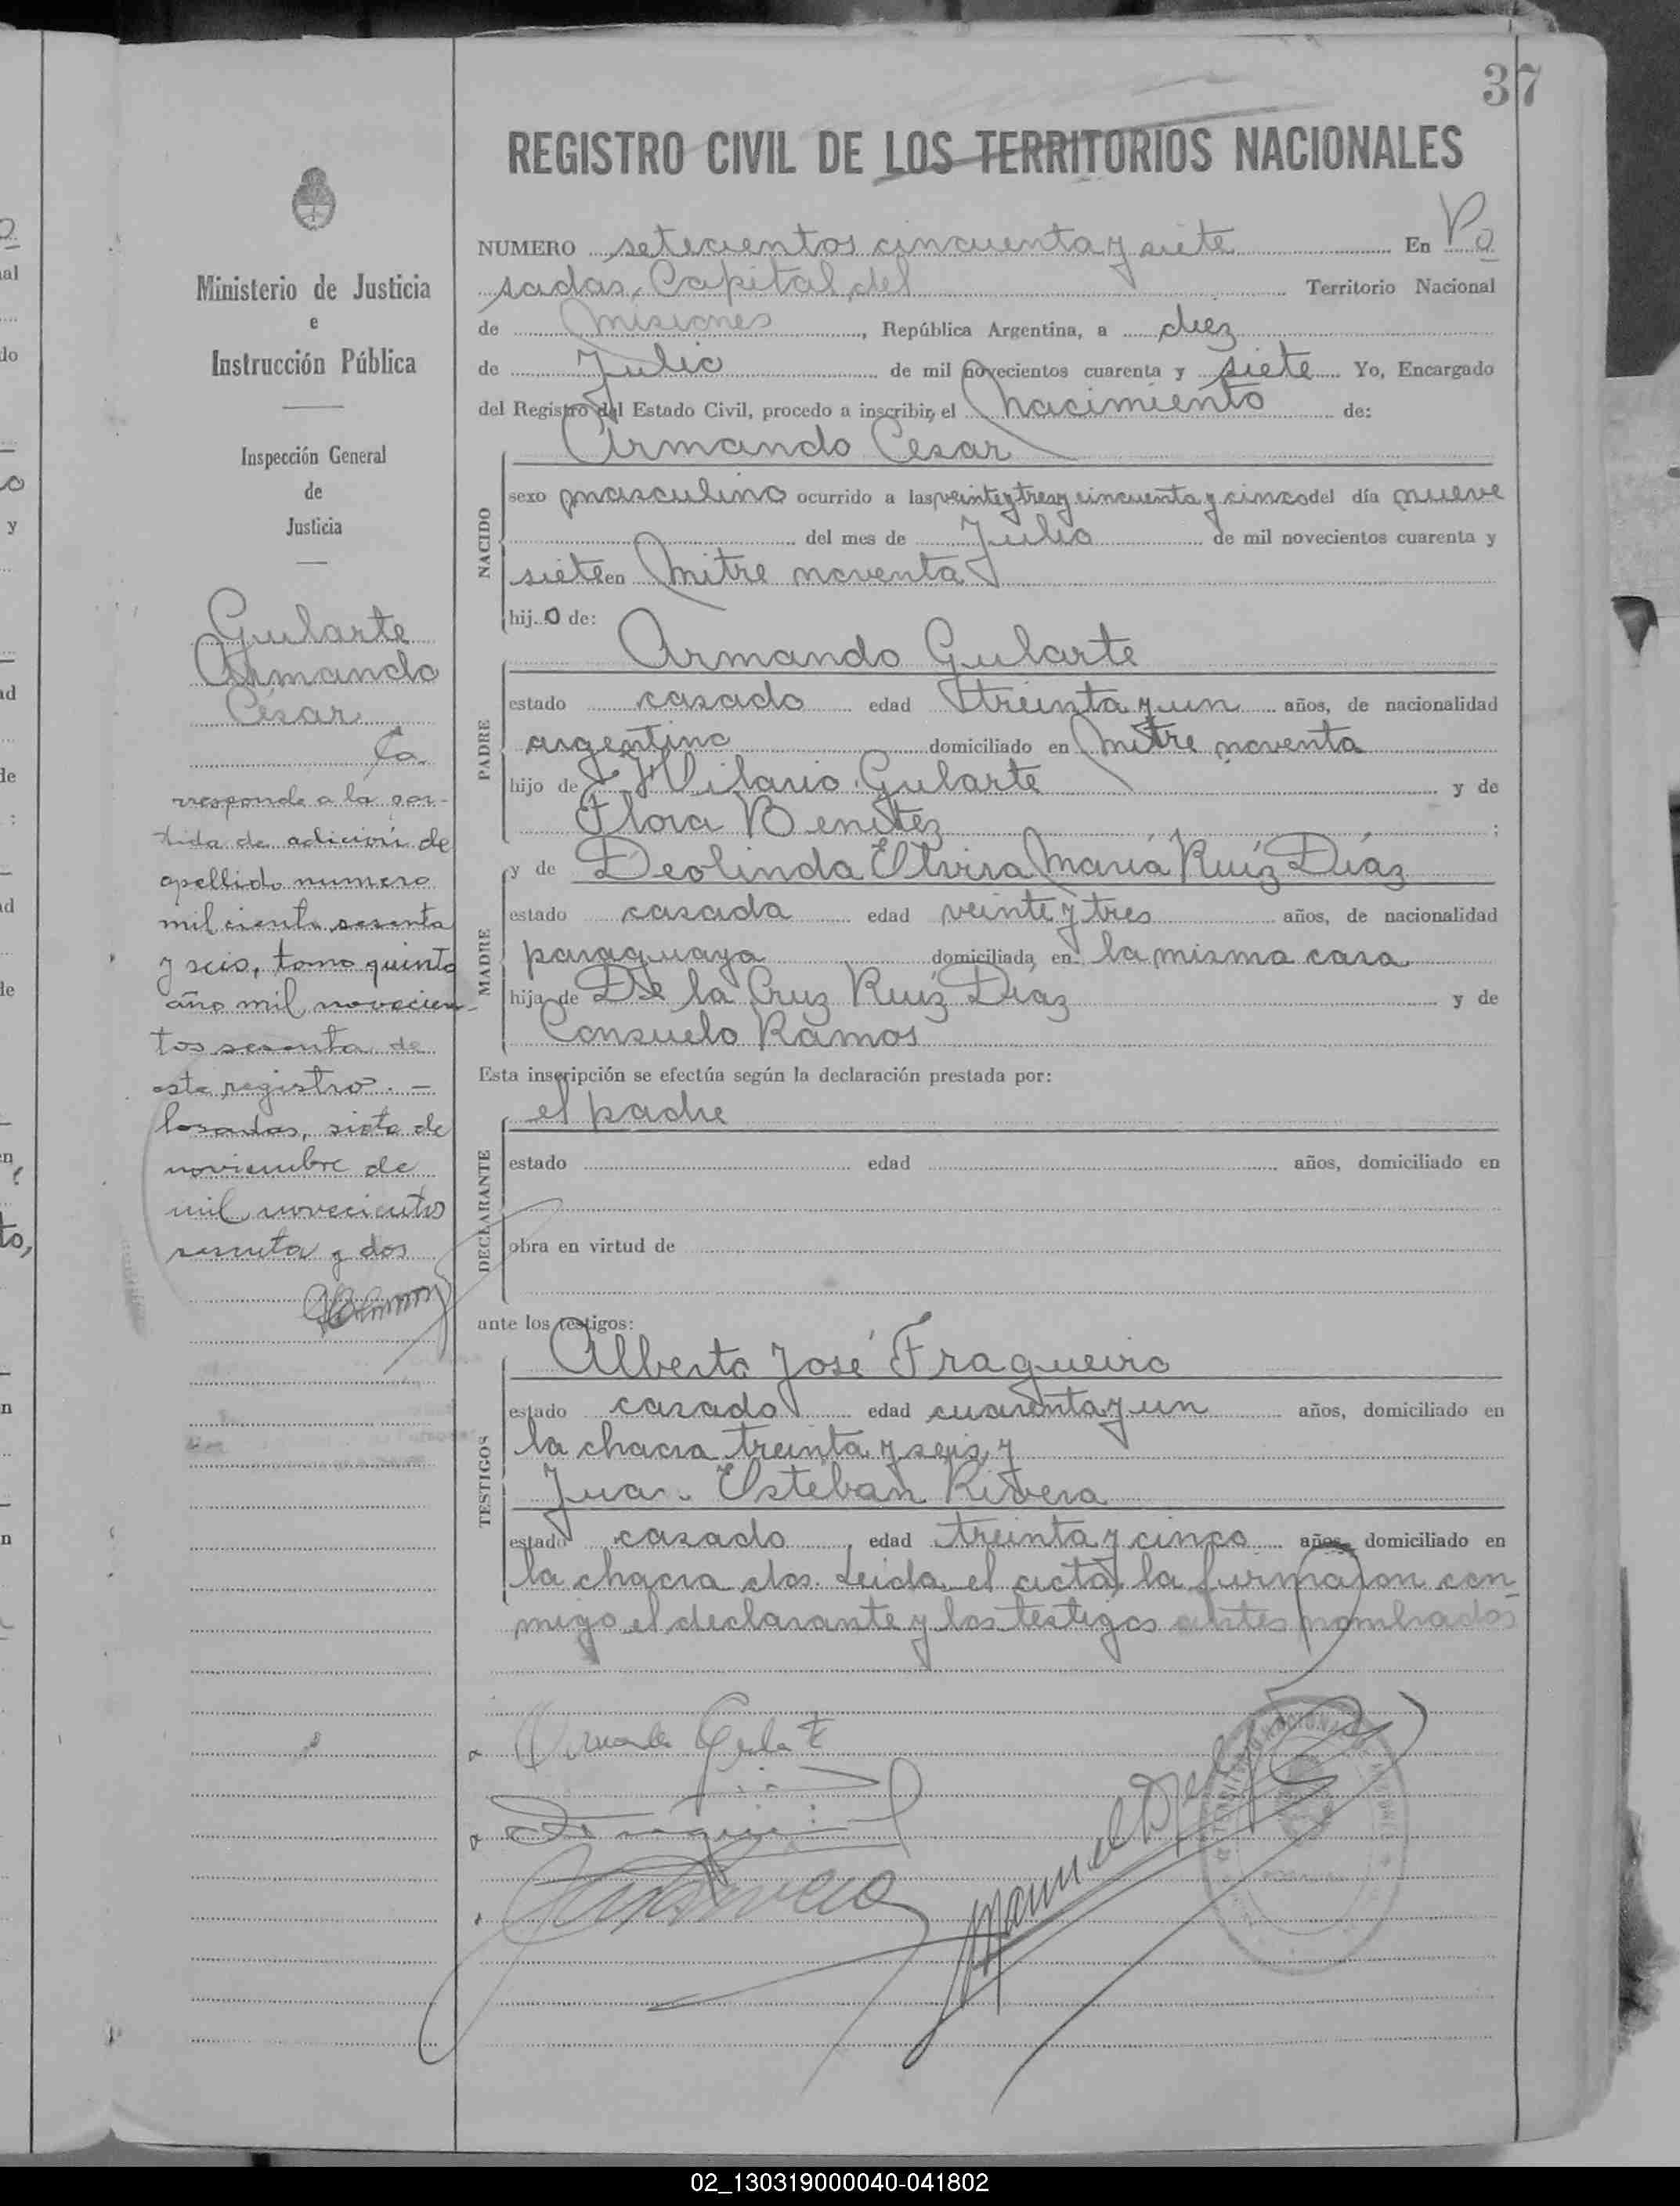 37
REGISTRO CIVIL DE LOS TERRITORIOS NACIONALES
NUMERO setecientos cincuenta y siete En Po
sadas, Capital del Territorio Nacional
de Misiones, República Argentina, a diez
de Julio de mil novecientos cuarenta y siete Yo, Encargado
del Registro del Estado Civil, procedo a inscribir, el nacimiento de:
Armando Cesar
NACIDO
sexo masculino ocurrido a las veinte y tres y cincuenta y cinco del día nueve
del mes de Julio de mil novecientos cuarenta y
siete en Mitre noventa
hijo de:
Armando Gularte
PADRE
estado casado edad treinta y un años, de nacionalidad
argentino domiciliado en Mitre noventa
hijo de Hilario Gularte y de
Flora Benítez ;
y de Deolinda Elvira María Ruíz Díaz
MADRE
estado casada edad veinte y tres años, de nacionalidad
paraguaya domiciliada en la misma casa
hija de De la Cruz Ruíz Díaz y de
Consuelo Ramos
Esta inscripción se efectúa según la declaración prestada por:
el padre
DECLARANTE
estado edad años, domiciliado en
obra en virtud de
ante los testigos:
Alberto José Fragueiro
TESTIGOS
estado casado edad cuarenta y un años, domiciliado en
la chacra treinta y seis y
Juan Esteban Rivero
estado casado edad treinta y cinco años, domiciliado en
la chacra dos. Leida el acta, la firmaron con
migo el declarante y los testigos antes nombrados
Ministerio de Justicia
e
Instrucción Pública
Inspección General
de
Justicia
Gularte
Armando
César
Co
rresponde a la par-
tida de adición de
apellido numero
mil ciento sesenta
y seis, tomo quinto
año mil novecien-
tos sesenta de
este registro. —
Posadas, siete de
noviembre de
mil novecientos
sesenta y dos
02_130319000040-041802